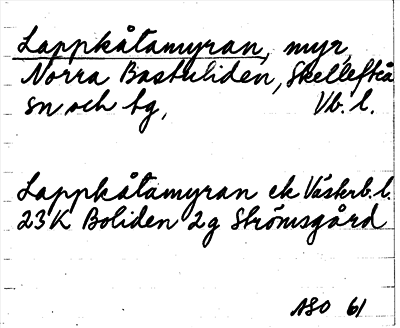 Lappkåtamyran, myr,
Norra Bastuliden, Skellefteå
sn och tg, Vb. l.
Lappkåtamyran ek Västerb. l.
23K Boliden 2g Strömsgård
ASO 61